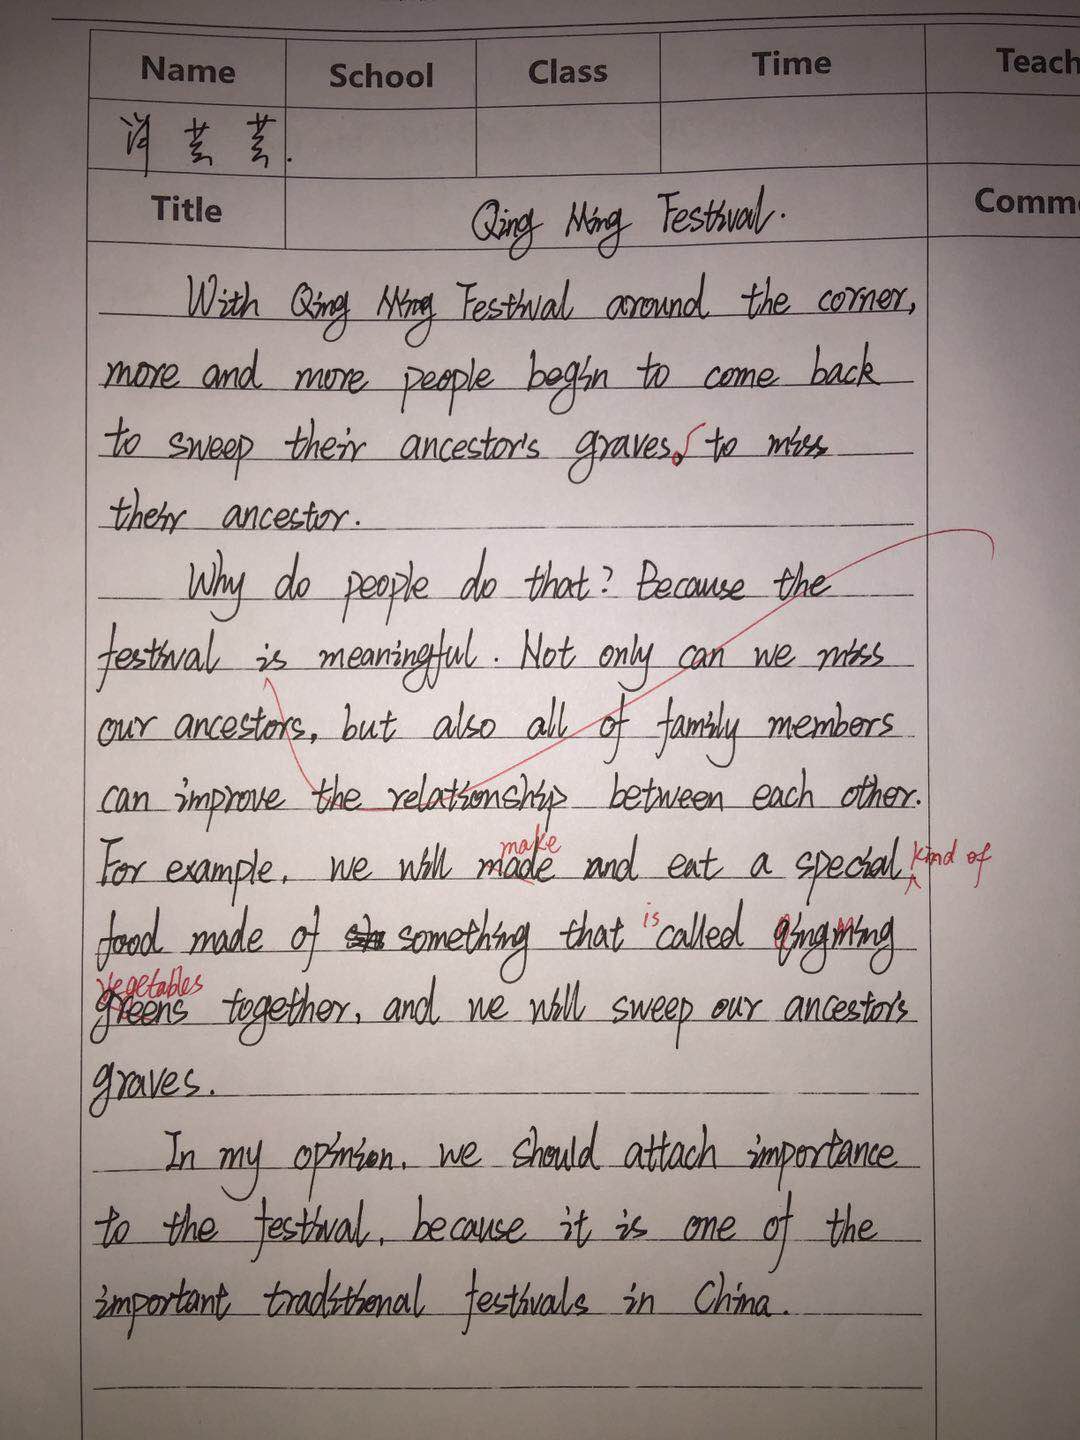 Name School Class Time Teach
许芸芸.
Title Qing Ming Festival. Comme
With Qing Ming Festival around the corner,
more and more people begin to come back
to sweep their ancestor's graves, to miss
their ancestor.
Why do people do that? Because the
festival is meaningful. Not only can we miss
our ancestors, but also all of family members
can improve the relationship between each other.
make
For example, we will made and eat a special kind of
is
food made of something that called qingming
vegetables
greens together, and we will sweep our ancestor's
graves.
In my opinion, we should attach importance
to the festival, because it is one of the
important traditional festivals in China.